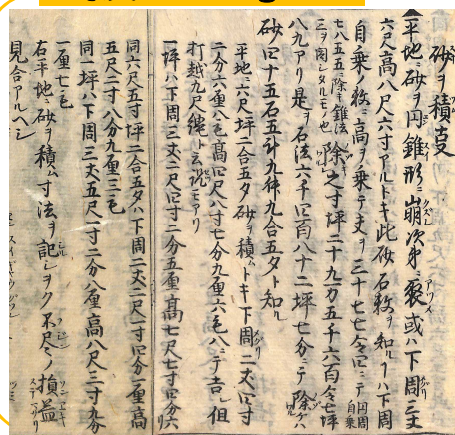 砂ヲ積支
一平地ニ砂ヲ円錐形ニ崩次㐧ニ褒或ハ下周三丈
六尺高八尺六寸アルトキ此砂石数ヲ知ルハ下周
自乗ノ数ニ高ヲ乗テ丈ヲ三十七七令ロニテ円周自乗
七八五五ニ除キ錐法ヲ除之寸坪二十九万五千六百令七坪
八九アリ是ヲ石法六千四百八十二坪七分ニテ除ケハ
砂四十五石五斗九升九合五夕ト知ル
平地ニ六尺坪二合五夕砂ヲ積ムトキ下周二丈四寸
二分六厘八毛高四尺八寸七分九厘六毛八ニテ吉但
打越九尺縄ト云説モアリ
一坪ハ下周三丈二尺四寸二分五厘高七尺七寸四分六
同六尺五寸坪二合五夕ハ下周二丈二尺一寸四分一厘高
五尺二寸八分九厘三毛
同一坪ハ下周三丈五尺一寸二分八厘高八尺三寸九分
一厘七毛
右平地ニ砂ヲ積ム寸法ヲ記シヲク不尽ノ損益
見合アルヘシ